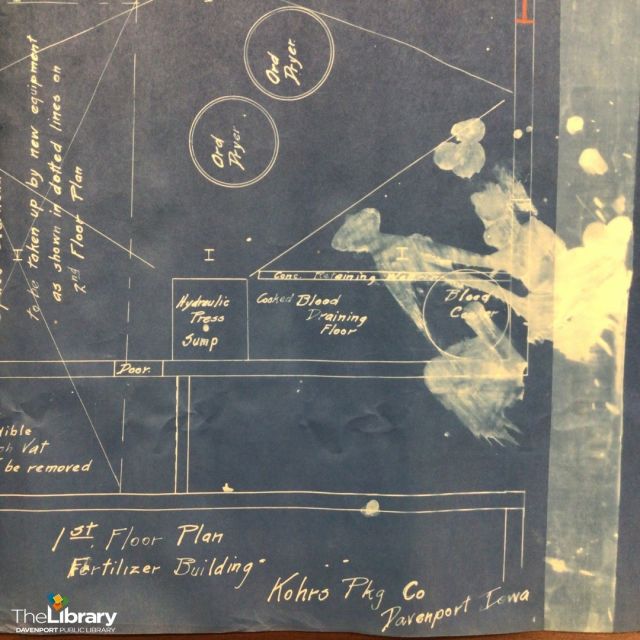 to be taken up by new equipment
as shown in dotted lines on
2nd Floor Plan
Ord
Dryer
Ord
Dryer
Conc. Retaining
Hydraulic
Press
Sump
Cooked Blood
Draining
Floor
Blood
Cooker
Door.
Vat
be removed
1st. Floor Plan
Fertilizer Building
Kohrs Pkg Co
Davenport Iowa
TheLibrary
DAVENPORT PUBLIC LIBRARY